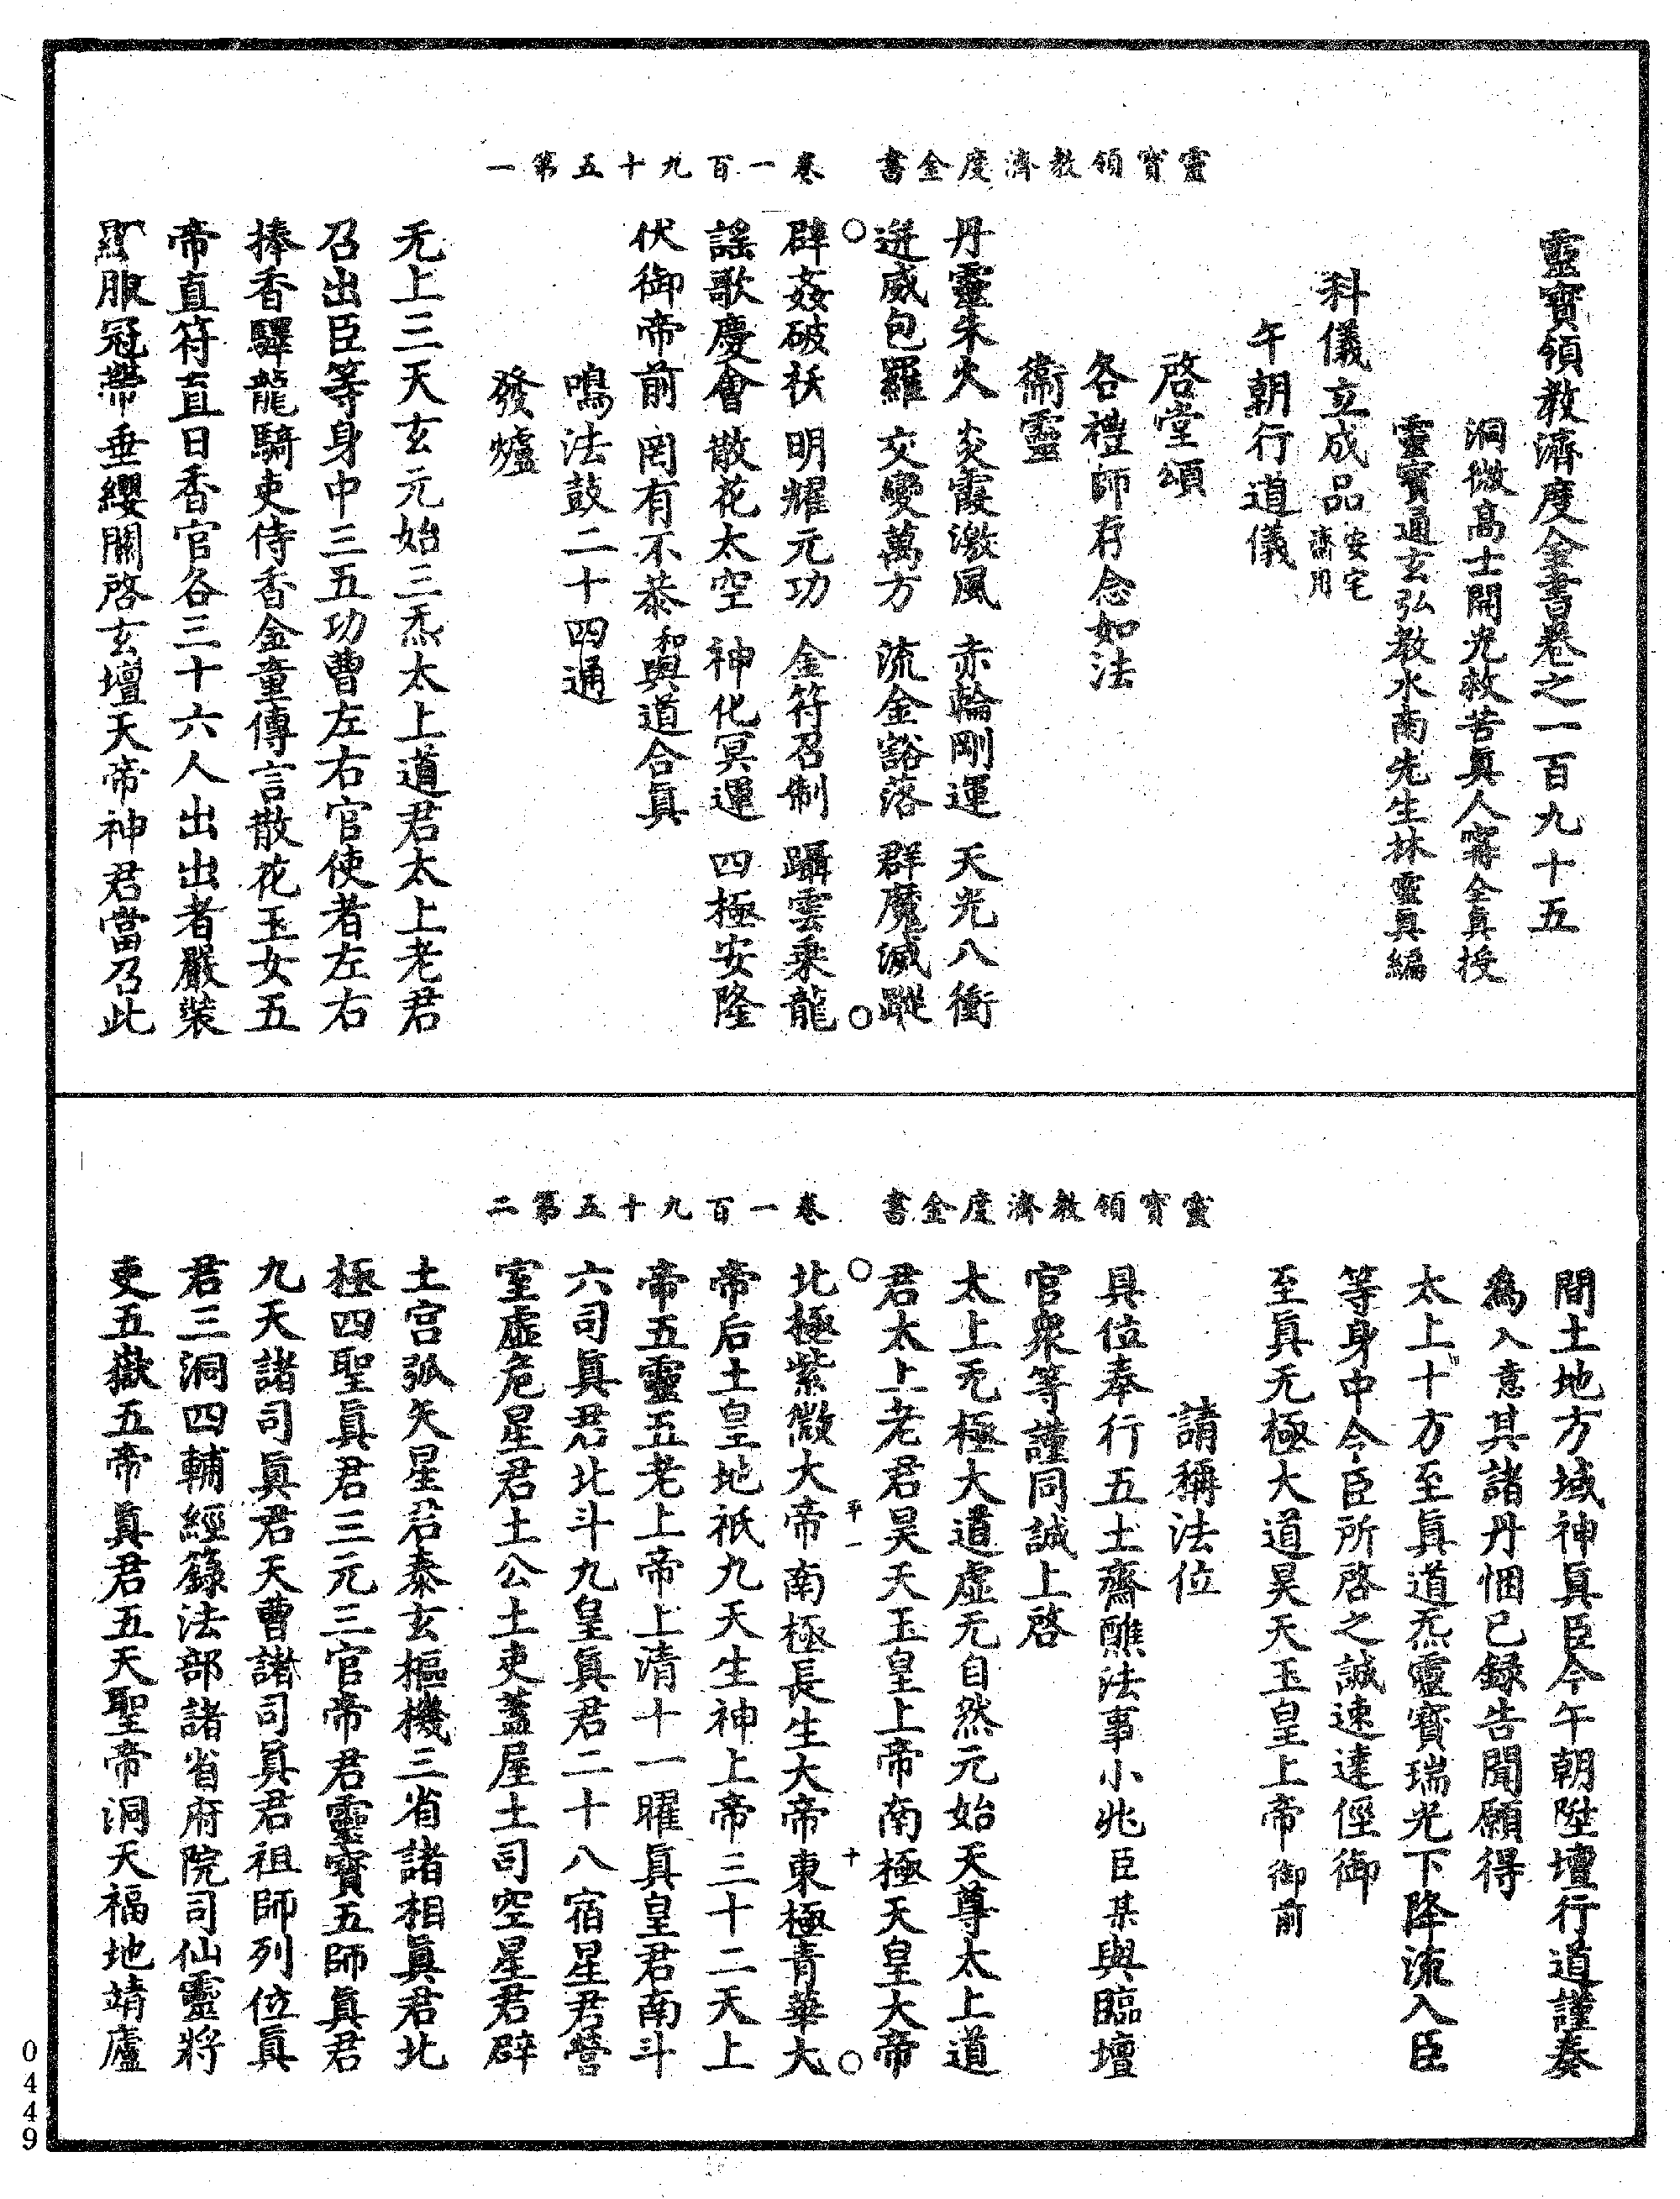 靈寶領教濟度金書 卷一百九十五第一
靈寶領教濟度金書卷之一百九十五
洞微高士開光救苦眞人寗全眞授
靈寶通玄弘教水南先生林靈眞編
科儀立成品安宅齋用
午朝行道儀
啓堂頌
各禮師存念如法
衞靈
丹靈朱火 炎霞激風 赤輪剛運 天光八衝
迸威包羅 交變萬方 流金豁落 群魔滅蹤
辟姦破袄 明耀元功 金符召制 躡雲乗龍
謠歌慶會 散花太空 神化冥運 四極安隆
伏御帝前 罔有不恭和與道合眞
鳴法鼓二十四通
發爐
无上三天玄元始三炁太上道君太上老君
召出臣等身中三五功曹左右官使者左右
捧香驛龍騎吏侍香金童傳言散花玉女五
帝直符直日香官各三十六人出出者嚴裝
顯服冠帶垂纓關啓玄壇天帝神君當召此
靈寶領教濟度金書 卷一百九十五第二
間土地方域神眞臣今午朝陞壇行道謹奏
爲入意其諸丹悃已録告聞願得
太上十方至眞道炁靈寶瑞光下降流入臣
等身中令臣所啓之誠速達俓御
至眞无極大道昊天玉皇上帝御前
請稱法位
具位奉行五土齋醮法事小兆臣某與臨壇
官衆等謹同誠上啓
太上无極大道虛无自然元始天尊太上道
君太上老君昊天玉皇上帝南極天皇大帝
北極紫微大帝南極長生大帝東極青華大
帝后土皇地祇九天生神上帝三十二天上
帝五靈五老上帝上清十一曜眞皇君南斗
六司眞君北斗九皇眞君二十八宿星君營
室虛危星君土公土吏蓋屋土司空星君辟
土宫弧矢星君泰玄樞機三省諸相眞君北
極四聖眞君三元三官帝君靈寶五師眞君
九天諸司眞君天曹諸司眞君祖師列位眞
君三洞四輔經籙法部諸省府院司仙靈將
吏五嶽五帝眞君五天聖帝洞天福地靖廬
平一
十
0449